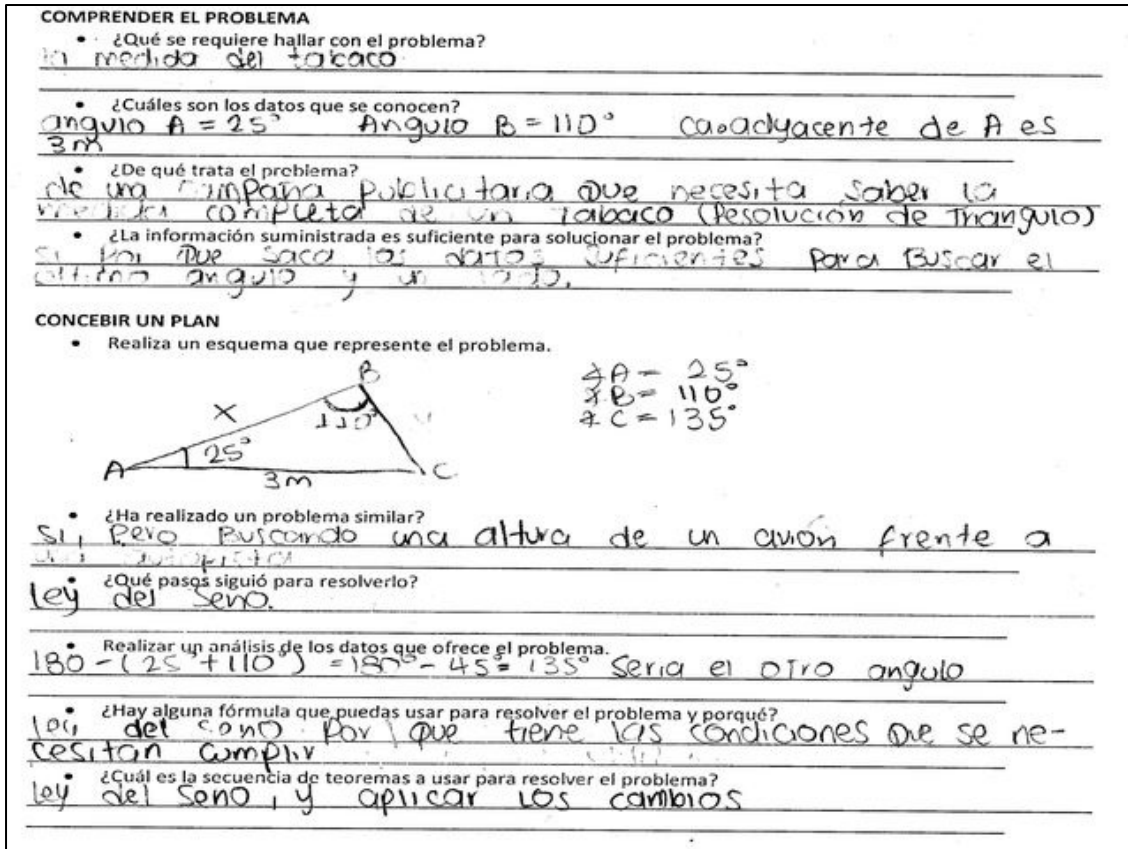 COMPRENDER EL PROBLEMA
• ¿Qué se requiere hallar con el problema?
la medida del tabaco
• ¿Cuáles son los datos que se conocen?
angulo A = 25° Angulo B = 110° ca.adyacente de A es
3m
• ¿De qué trata el problema?
de una campaña publicitaria que necesita saber la
medida completa de un tabaco (Resolución de Triangulo)
• ¿La información suministrada es suficiente para solucionar el problema?
si por que saca los datos suficientes para Buscar el
ultimo angulo y un lado.
CONCEBIR UN PLAN
• Realiza un esquema que represente el problema.
B
∡A = 25°
∡B = 110°
∡C = 135°
X
110°
25°
A
C
3m
• ¿Ha realizado un problema similar?
Si, Pero Buscando una altura de un avión frente a
• ¿Qué pasos siguió para resolverlo?
ley del Seno.
• Realizar un análisis de los datos que ofrece el problema.
180 - (25° + 110°) = 180° - 45° = 135° Seria el otro angulo
• ¿Hay alguna fórmula que puedas usar para resolver el problema y porqué?
del seno por que tiene las condiciones que se ne-
cesitan cumplir
• ¿Cuál es la secuencia de teoremas a usar para resolver el problema?
ley del Seno, y aplicar los cambios